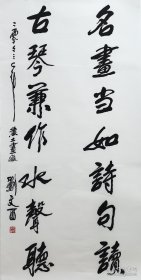 名畫当如詩句讀
古琴兼作水聲聽
劉文西